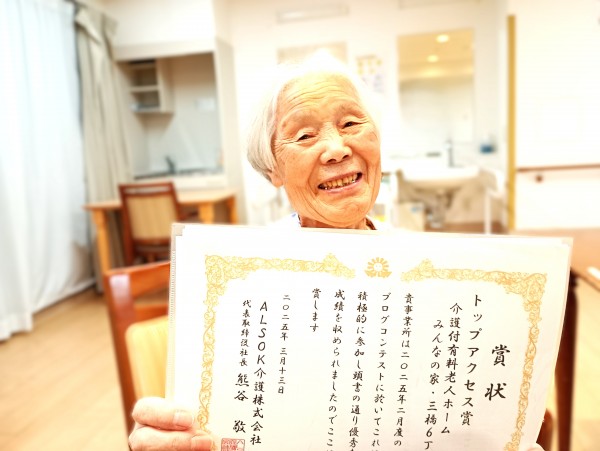 賞状
トップアクセス賞
介護付有料老人ホーム
みんなの家・三橋6丁
貴事業所は二〇二五年二月度の
ブログコンテストに於いてこれに
積極的に参加し頭書の通り優秀な
成績を収められましたのでここに
賞します
二〇二五年三月十三日
ALSOK介護株式会社
代表取締役社長 熊谷 敬